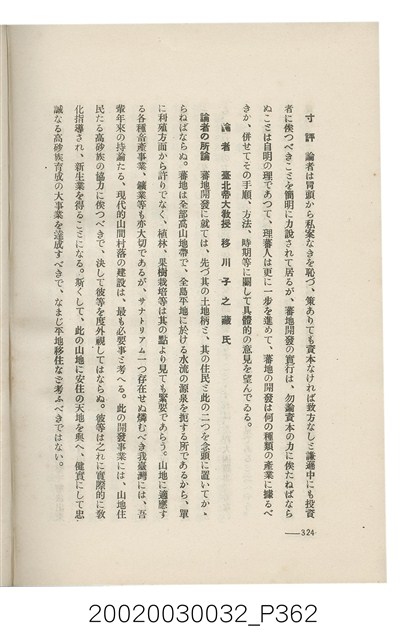 寸評　論者は冒頭から私案なきを恥づ、策ありても資本なければ致方なしと謙遜中にも投資
者に俟つべきことを簡明に力說されて居るが、蕃地開發の實行は、勿論資本の力に俟たねばなら
ぬことは自明の理であつて、理蕃人は更に一步を進めて、蕃地の開發は何の種類の產業に據るべ
きか、併せてその手順、方法、時期等に關して具體的の意見を望んでゐる。
論者　臺北帝大敎授　移川子之藏氏
論者の所論　蕃地開發に就ては、先づ其の土地柄と、其の住民と此の二つを念頭に置いてか、
らねばならぬ。蕃地は全部高山地帶で、全島平地に於ける水流の源泉を扼する所であるから、單
に利殖方面から許りでなく、植林、果樹栽培等は其の點より見ても緊要であらう。山地に適應す
る各種畜產事業、鑛業等も亦大切であるが、サナトリアム一つ存在せぬ憐むべき我臺灣には、吾
輩年來の持論たる、現代的山間村落の建設は、最も必要事と考へる。此の開發事業には、山地住
民たる高砂族の協力に俟つべきで、決して彼等を度外視してはならぬ。彼等は之れに實際的に敎
化指導され、新生業を得ることになる。斯くして、此の山地に安住の天地を與へ、健實にして忠
誠なる高砂族育成の大事業を達成すべきで、なまじ平地移住など考ふべきではない。
—324
20020030032_P362